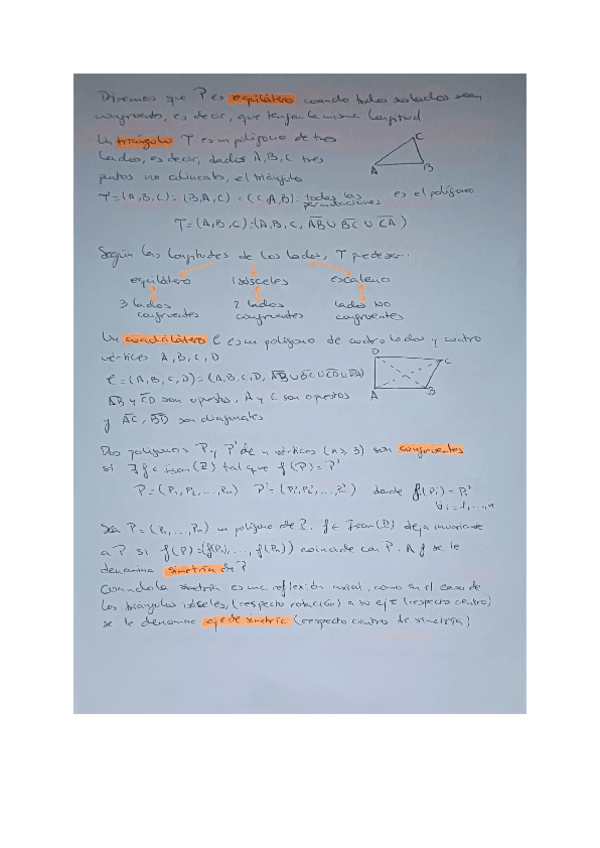 Diremos que P es equilátero cuando todos sus lados sean
congruentes, es decir, que tengan la misma longitud
Un triángulo T es un polígono de tres
lados, es decir, dados A, B, C tres
puntos no alineados, el triángulo
T = (A, B, C) = (B, A, C) = (C, A, B) = todas las permutaciones es el polígono
T = (A, B, C) = (A, B, C, A̅B̅ ∪ B̅C̅ ∪ C̅A̅)
A
B
C
Según las longitudes de los lados, T puede ser:
equilátero isósceles escaleno
3 lados congruentes
2 lados congruentes
lados NO congruentes
Un cuadrilátero C es un polígono de cuatro lados y cuatro
vértices A, B, C, D
C = (A, B, C, D) = (A, B, C, D, A̅B̅ ∪ B̅C̅ ∪ C̅D̅ ∪ D̅A̅)
A̅B̅ y C̅D̅ son opuestos, A y C son opuestos
y A̅C̅, B̅D̅ son diagonales
D
C
A
B
Dos polígonos P y P' de n vértices (n ≥ 3) son congruentes
si ∃ f ∈ Isom(ℙ) tal que f(P) = P'
P = (P₁, P₂, ..., Pₙ) P' = (P₁', P₂', ..., ') donde f(Pᵢ) = Pᵢ'
∀i = 1, ..., n
Sea P = (P₁, ..., Pₙ) un polígono de ℙ. f ∈ Isom(ℙ) deja invariante
a P si f(P) = (f(P₁), ..., f(Pₙ)) coincide con P. A f se le
denomina simetría de P
Cuando la simetría es una reflexión axial, como en el caso de
los triángulos isósceles, (respecto rotación) a su eje (respecto centro)
se le denomina eje de simetría (respecto centro de simetría)